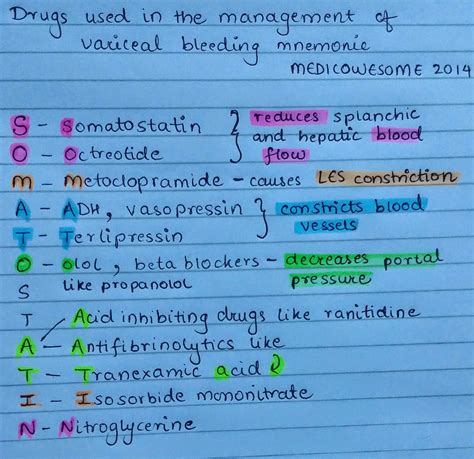 Drugs used in the management of
variceal bleeding mnemonic
MEDICOWESOME 2014
S - Somatostatin } reduces splanchic
and hepatic blood
O - Octreotide flow
M - Metoclopramide - causes LES constriction
A - ADH, vasopressin } constricts blood
T - Terlipressin vessels
O - olol, beta blockers - decreases portal
S like propanolol pressure
T Acid inhibiting drugs like ranitidine
A - Antifibrinolytics like
T - Tranexamic acid
I - Isosorbide mononitrate
N - Nitroglycerine